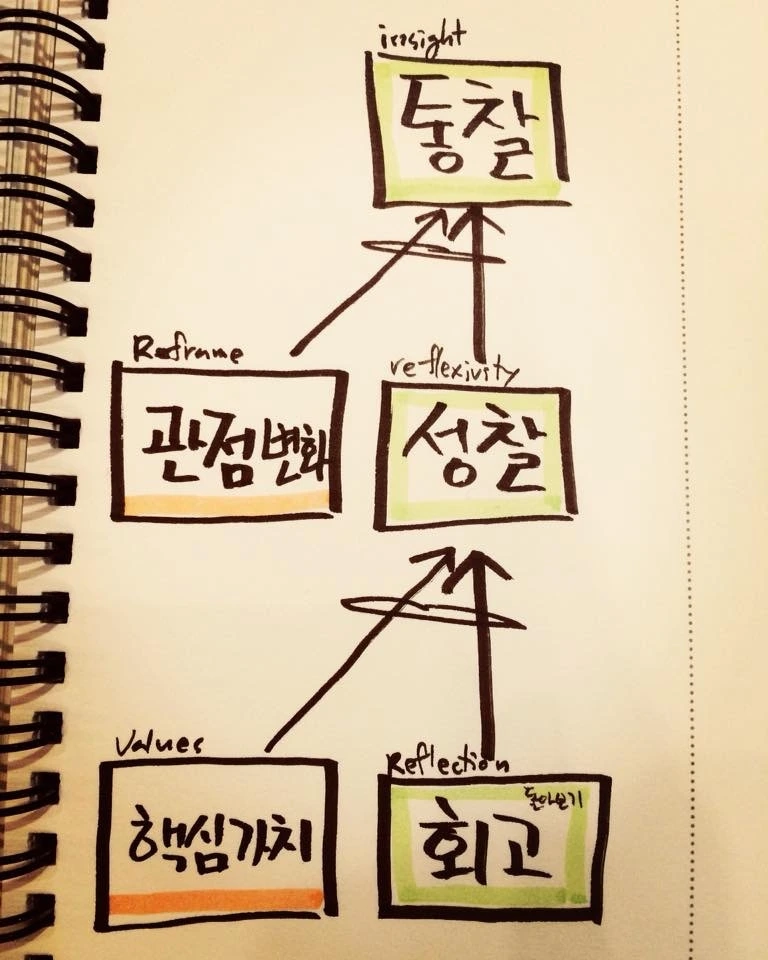 insight
통찰
Reframe
관점변화
reflexivity
성찰
Values
핵심가치
Reflection
돌아보기
회고